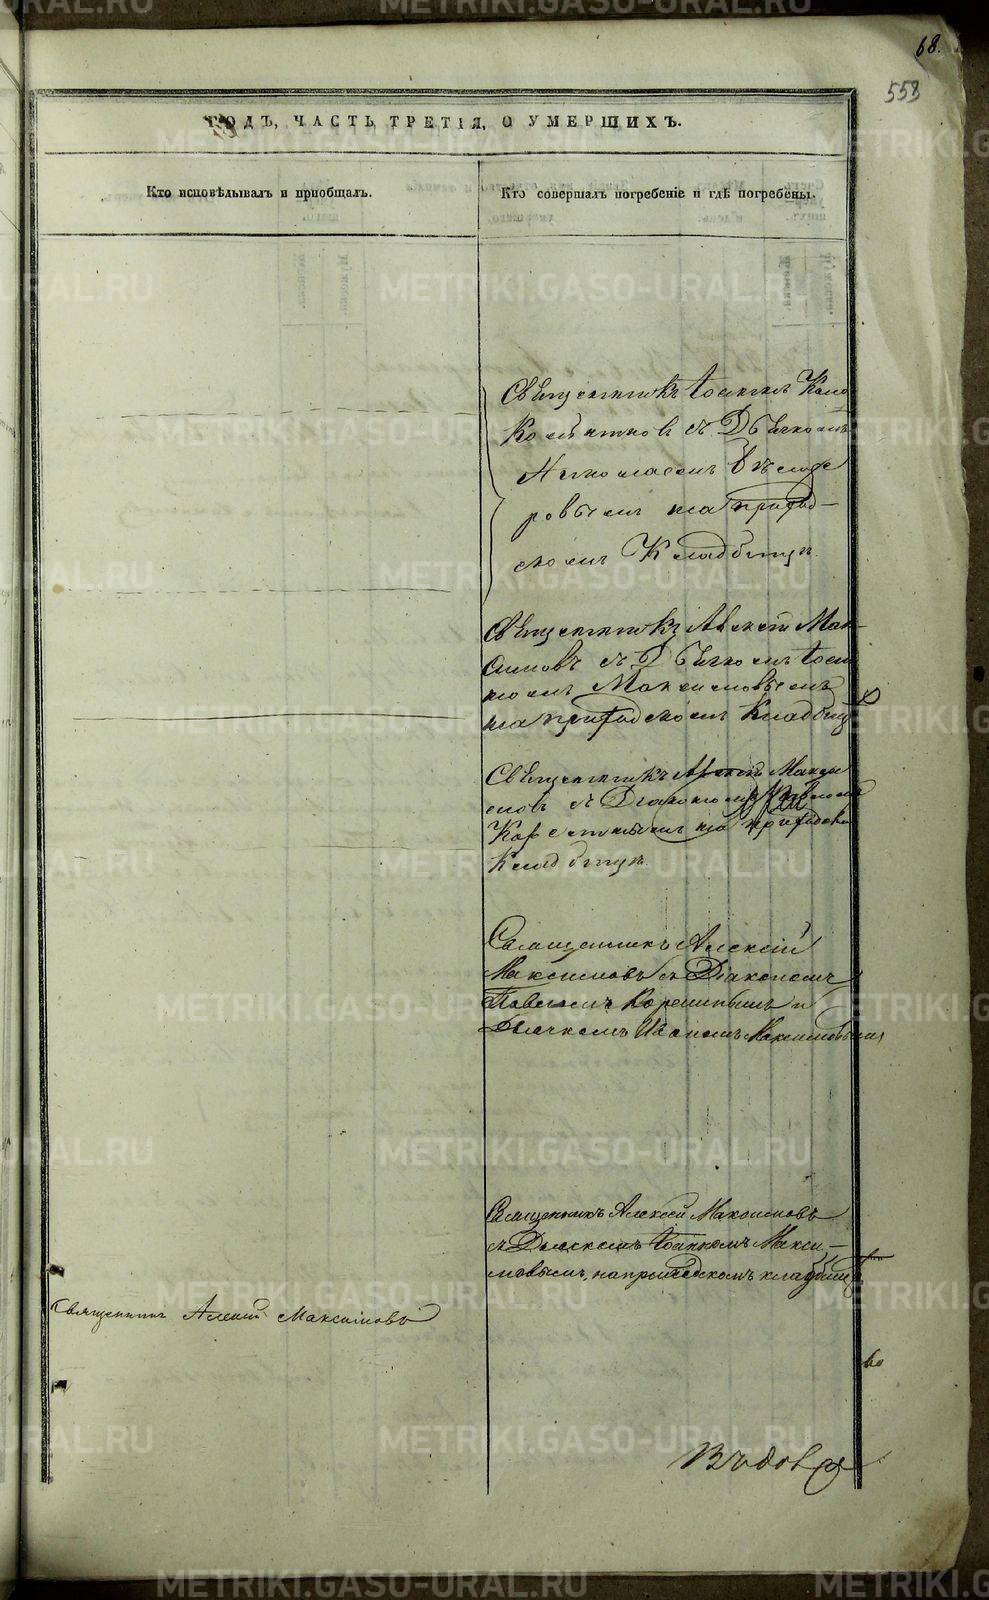 68.
558
ГОДЪ, ЧАСТЬ ТРЕТІЯ, О УМЕРШИХЪ.
Кто исповѣдывалъ и пріобщалъ.
Кто совершалъ погребеніе и гдѣ погребены.
Священникъ Іоаннъ
съ Дьячкомъ
Николаемъ
ровымъ на приход-
скомъ Кладбищѣ.
Священникъ Алексѣй Мак-
симовъ съ Дьячкомъ Іоан-
номъ Максимовымъ
на приходскомъ Кладбищѣ
Священникъ Алексѣй Макси
мовъ съ Діакономъ Павломъ
на приходскомъ
Кладбищѣ.
Священникъ Алексѣй
Максимовъ съ Діакономъ
Павломъ и
Дьячкомъ Иваномъ Максимовымъ
Священникъ Алексѣй Максимовъ
съ Дьячкомъ Іоанномъ Макси-
мовымъ, на приходскомъ кладбищѣ
Священникъ Алексѣй Максимовъ
METRIKI.GASO-URAL.RU